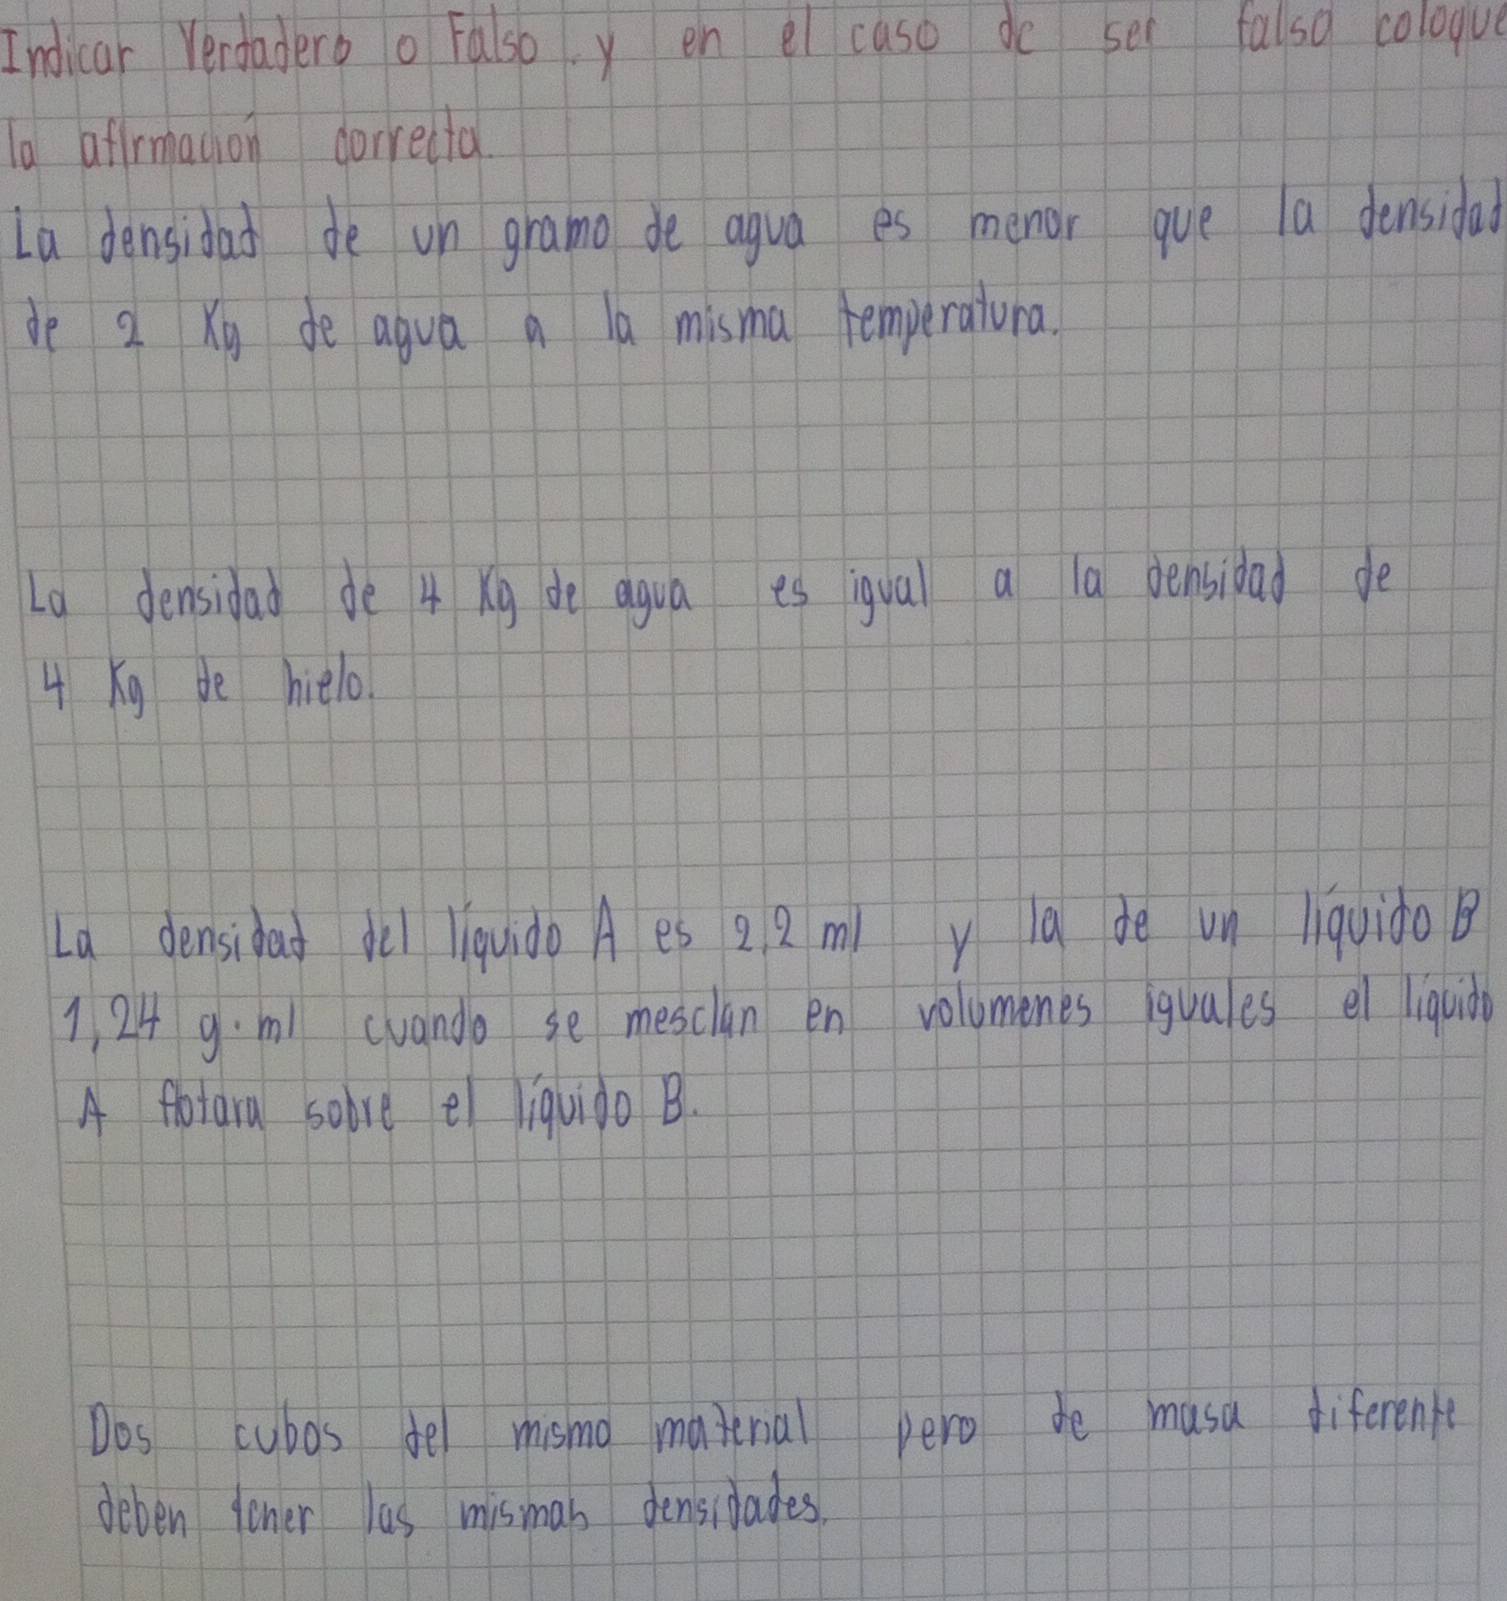 Indicar Verdadero o Falso. y en el caso de ser falsa coloque
la afirmacion correcta.
La densidad de un gramo de agua es menor que la densidad
de 2 Kg de agua a la misma temperatura.
La densidad de 4 Kg de agua es igual a la densidad de
4 Kg de hielo.
La densidad del líquido A es 2,2 ml y la de un líquido B
1,24 g. ml cuando se mesclan en volumenes iguales el liquido
A flotara sobre el líquido B.
Dos cubos del mismo material pero de masa diferente
deben tener las mismas densidades.